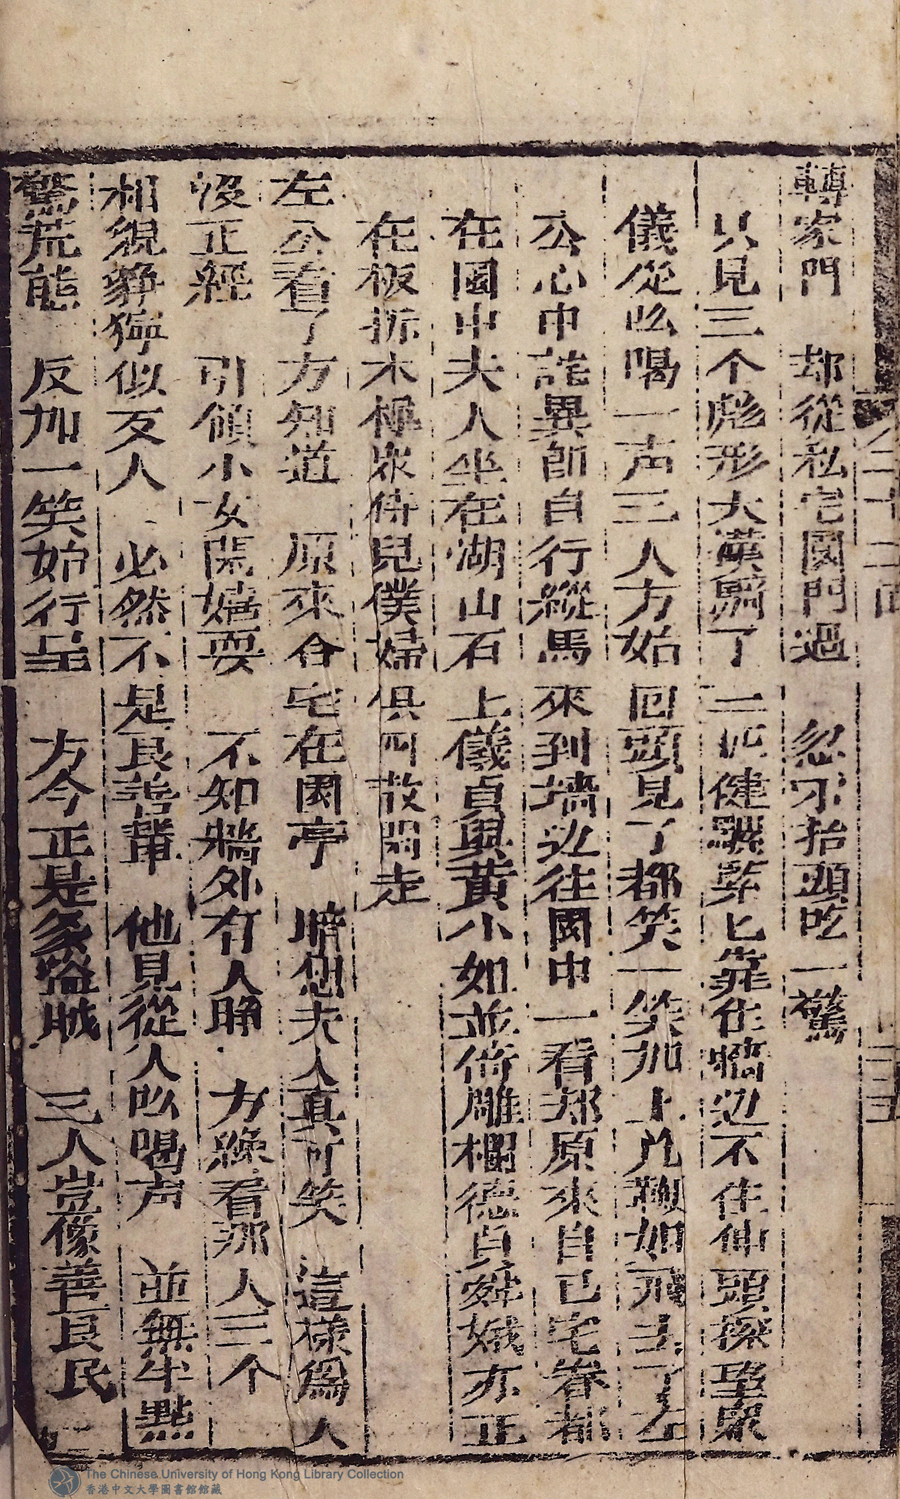 轉家門　却從私宅園門過　忽才抬頭吃一驚
只見三个彪形大漢騎了二匹健騾緊匕靠住牆边不住伸頭探望衆
儀從吆喝一声三人方始回頭見了都笑一笑加上几鞭如飛去了左
公心中詫異即自行縱馬來到墻边往園中一看却原來自已宅眷都
在園中夫人坐在湖山石上儀貞與黃小如並倚雕欄德貞舜娥亦正
在板折木樨衆侍兒僕婦俱四散閒走
左公看了方知道　原來合宅在園亭　暗怨夫人真可笑　這樣為人
没正經　引領小女閒嬉耍　不知牆外有人睁　方纔看那人三个
相貌猙獰似歹人　必然不是良善輩　他見從人吆喝声　並無半點
驚荒態　反加一笑始行呈　方今正是多盜賊　三人豈像善良民
二十二回
三五
The Chinese University of Hong Kong Library Collection
香港中文大學圖書館館藏